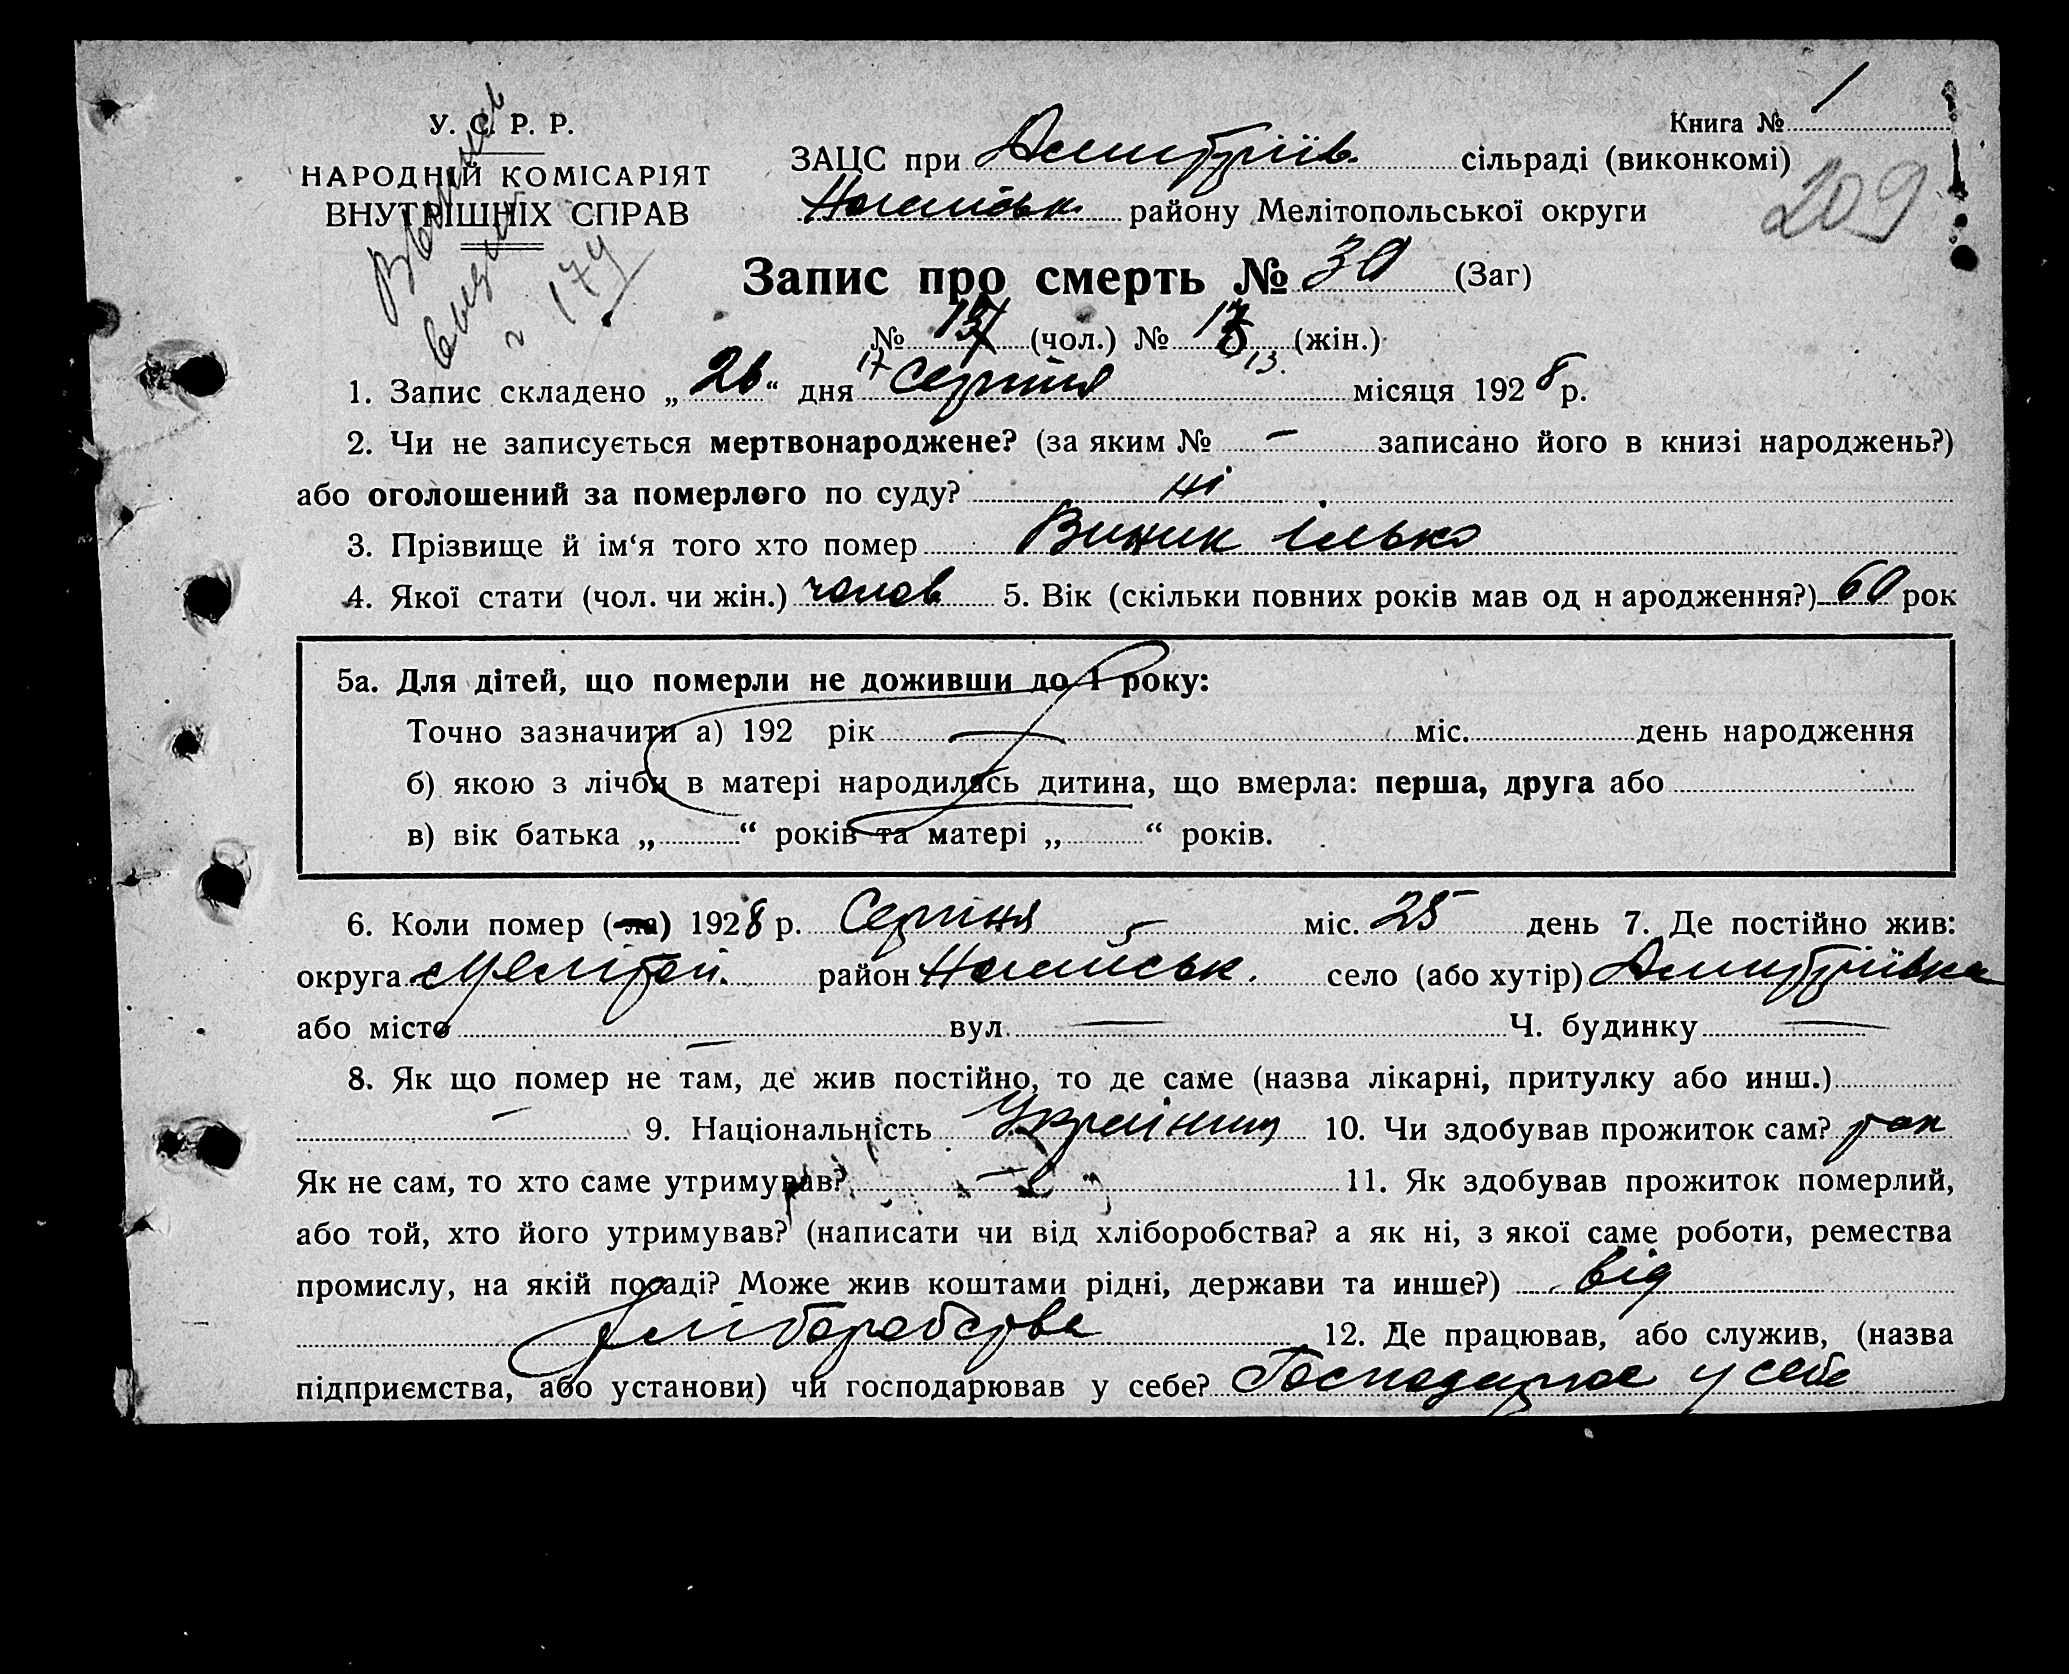 У. С. Р. Р.
НАРОДНІЙ КОМІСАРІЯТ
ВНУТРІШНІХ СПРАВ
Книга № 1
ЗАЦС при Дмитріїв. сільраді (виконкомі)
209
Ногайськ. району Мелітопольської округи
Запис про смерть № 30 (Заг)
№ 17 (чол.) № 13 (жін.)
1. Запис складено „26“ дня Серпня місяця 1928 р.
2. Чи не записується мертвонароджене? (за яким № – записано його в книзі народжень?)
або оголошений за померлого по суду? ні
3. Прізвище й ім‘я того хто помер Вижик Ілько
4. Якої стати (чол. чи жін.) чолов 5. Вік (скільки повних років мав од н ародження?) 60 рок
5а. Для дітей, що померли не доживши до 1 року:
Точно зазначити а) 192 рік — міс. день народження
б) якою з лічби в матері народилась дитина, що вмерла: перша, друга або
в) вік батька „ “ років та матері „ “ років.
6. Коли помер (ла) 1928 р. Серпня міс. 25 день 7. Де постійно жив:
округа Мелітоп. район Ногайськ. село (або хутір) Дмитріївка
або місто — вул. — Ч. будинку —
8. Як що помер не там, де жив постійно, то де саме (назва лікарні, притулку або инш.)
— 9. Національність Україниц 10. Чи здобував прожиток сам? так
Як не сам, то хто саме утримував? — 11. Як здобував прожиток померлий,
або той, хто його утримував? (написати чи від хліборобства? а як ні, з якої саме роботи, ремества
промислу, на якій посаді? Може жив коштами рідні, держави та инше?) від
хліборобства 12. Де працював, або служив, (назва
підприємства, або установи) чи господарював у себе? Господарює у себе